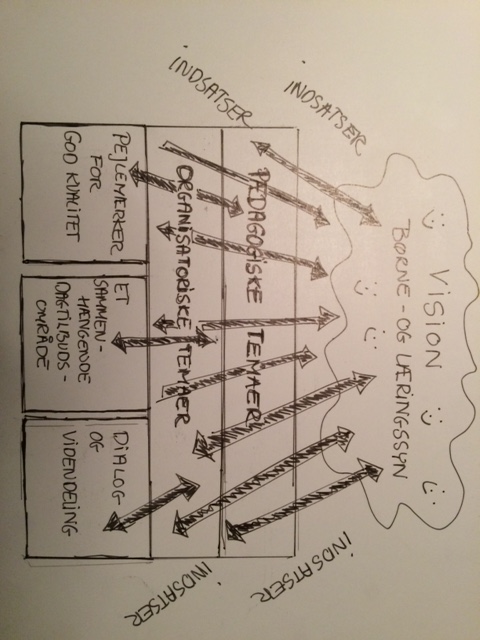 VISION
BØRNE-OG LÆRINGSSYN
INDSATSER
INDSATSER
INDSATSER
INDSATSER
PÆDAGOGISKE TEMAER
ORGANISATORISKE TEMAER
PEJLEMÆRKER
FOR
GOD KVALITET
ET
SAMMEN-
HÆNGENDE
DAGTILBUDS-
OMRÅDE
DIALOG
OG
VIDENDELING